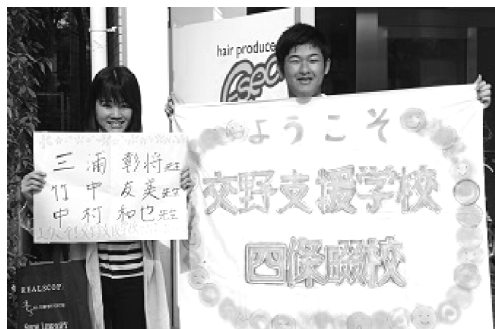 hair produce
三浦 彰将先生
竹中 友美先生
中村 和也先生
ようこそ
交野支援学校
四條畷校
REALSCOP